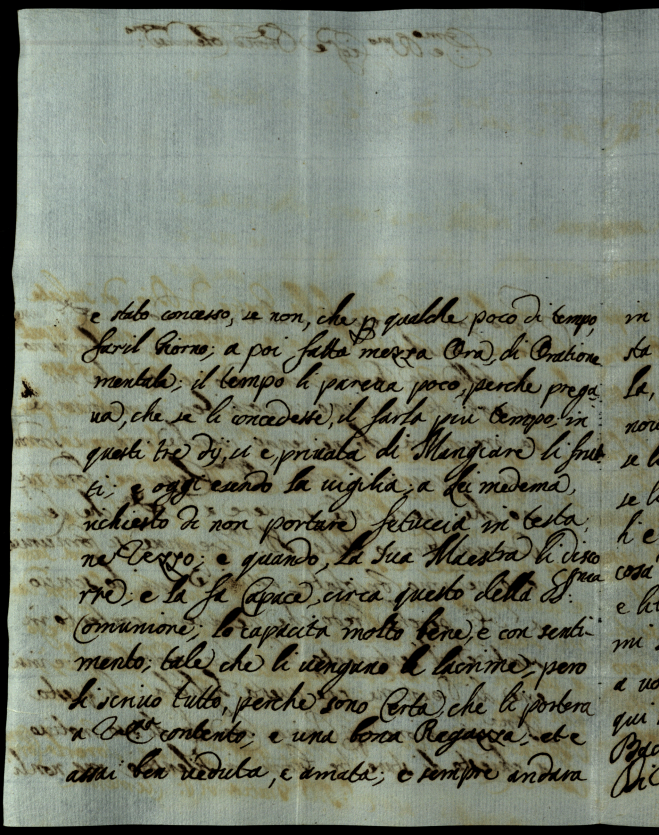 e stato concesso, se non, che p qualche poco di tempo,
far il Giorno; a poi fatto mezza Ora, di Oratione
mentale; il tempo li pareua poco, perche prega-
ua, che se li concedesse, il farla piu tempo; in
questi tre dij, si e, priuata di Mangiare li frut-
ti; e oggi esendo la uigilia, a lei medema,
richiesto di non portare fetuccia in testa,
ne Vezzo; e quando, la sua Maestra li disco
rre; e la fa Capace, circa questo della SS:
Comunione; lo capacita molto bene, e con senti-
mento; tale che li uengano le lacrime; pero
li scriuo tutto, perche sono Certa, che li portera
contento; e una bona Regazza, et e
assai ben ueduta, e amata; e sempre andara
in
sta
la,
nou
se l
se l
h e
cosa
e li
mi
a uo
qui